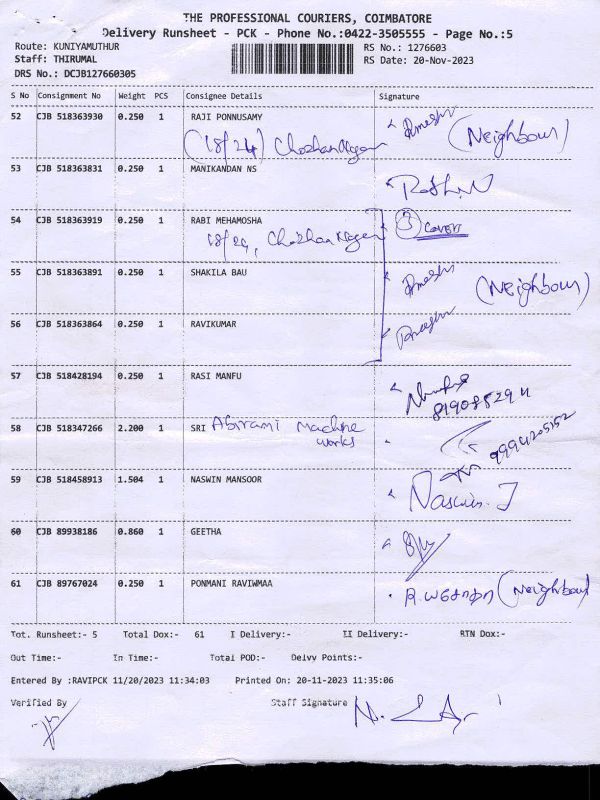 THE PROFESSIONAL COURIERS, COIMBATORE
Delivery Runsheet - PCK - Phone No.:0422-3505555 - Page No.:5
Route: KUNIYAMUTHUR RS No.: 1276603
Staff: THIRUMAL RS Date: 20-Nov-2023
DRS No.: DCJB127660305
S No Consignment No Weight PCS Consignee Details Signature
52 CJB 518363930 0.250 1 RAJI PONNUSAMY
(18/24) (Neighbour)
53 CJB 518363831 0.250 1 MANIKANDAN NS
54 CJB 518363919 0.250 1 RABI MEHAMOSHA 3 Covers
18/24,
55 CJB 518363891 0.250 1 SHAKILA BAU (Neighbour)
56 CJB 518363864 0.250 1 RAVIKUMAR
57 CJB 518428194 0.250 1 RASI MANFU
58 CJB 518347266 2.200 1 SRI Abirami Machine
works
59 CJB 518458913 1.504 1 NASWIN MANSOOR
Naswin. J
60 CJB 89938186 0.860 1 GEETHA
61 CJB 89767024 0.250 1 PONMANI RAVIWMAA (Neighbour)
Tot. Runsheet:- 5 Total Dox:- 61 I Delivery:- II Delivery:- RTN Dox:-
Out Time:- In Time:- Total POD:- Delvy Points:-
Entered By :RAVIPCK 11/20/2023 11:34:03 Printed On: 20-11-2023 11:35:06
Verified By Staff Signature